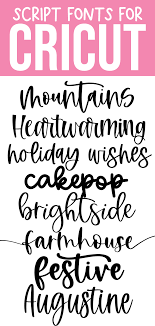 SCRIPT FONTS FOR
CRICUT
mountains
Heartwarming
holiday wishes
cakepop
brightside
farmhouse
festive
Augustine